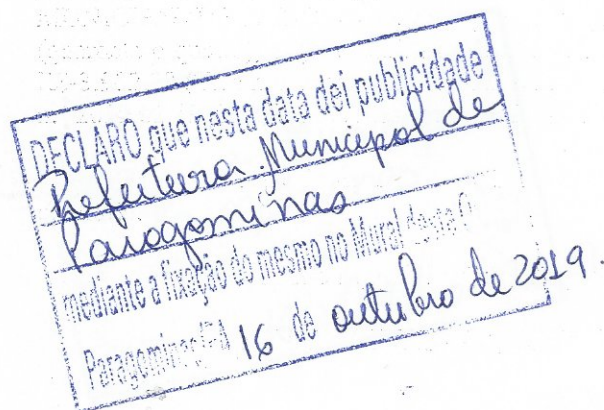 DECLARO que nesta data dei publicidade
Prefeitura Municipal de
Paragominas
mediante a fixação do mesmo no Mural deste
Paragominas/PA 16 de outubro de 2019.